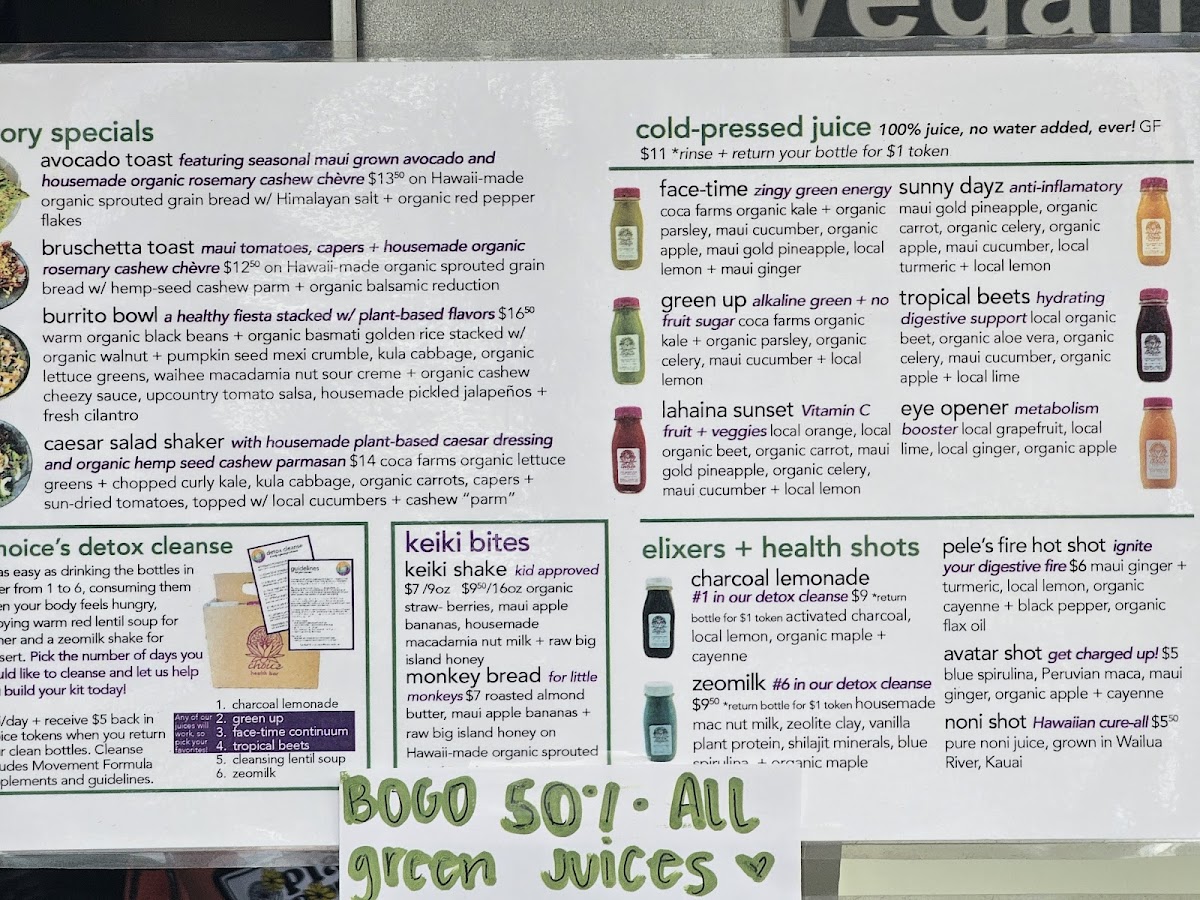 vegan
ory specials
avocado toast featuring seasonal maui grown avocado and
housemade organic rosemary cashew chèvre $13⁵⁰ on Hawaii-made
organic sprouted grain bread w/ Himalayan salt + organic red pepper
flakes
bruschetta toast maui tomatoes, capers + housemade organic
rosemary cashew chèvre $12⁵⁰ on Hawaii-made organic sprouted grain
bread w/ hemp-seed cashew parm + organic balsamic reduction
burrito bowl a healthy fiesta stacked w/ plant-based flavors $16⁵⁰
warm organic black beans + organic basmati golden rice stacked w/
organic walnut + pumpkin seed mexi crumble, kula cabbage, organic
lettuce greens, waihee macadamia nut sour creme + organic cashew
cheezy sauce, upcountry tomato salsa, housemade pickled jalapeños +
fresh cilantro
caesar salad shaker with housemade plant-based caesar dressing
and organic hemp seed cashew parmasan $14 coca farms organic lettuce
greens + chopped curly kale, kula cabbage, organic carrots, capers +
sun-dried tomatoes, topped w/ local cucumbers + cashew "parm"
cold-pressed juice 100% juice, no water added, ever! GF
$11 *rinse + return your bottle for $1 token
face-time zingy green energy
coca farms organic kale + organic
parsley, maui cucumber, organic
apple, maui gold pineapple, local
lemon + maui ginger
green up alkaline green + no
fruit sugar coca farms organic
kale + organic parsley, organic
celery, maui cucumber + local
lemon
lahaina sunset Vitamin C
fruit + veggies local orange, local
organic beet, organic carrot, maui
gold pineapple, organic celery,
maui cucumber + local lemon
sunny dayz anti-inflamatory
maui gold pineapple, organic
carrot, organic celery, organic
apple, maui cucumber, local
turmeric + local lemon
tropical beets hydrating
digestive support local organic
beet, organic aloe vera, organic
celery, maui cucumber, organic
apple + local lime
eye opener metabolism
booster local grapefruit, local
lime, local ginger, organic apple
hoice's detox cleanse
as easy as drinking the bottles in
er from 1 to 6, consuming them
en your body feels hungry,
oying warm red lentil soup for
ner and a zeomilk shake for
sert. Pick the number of days you
uld like to cleanse and let us help
build your kit today!
/day + receive $5 back in
ice tokens when you return
r clean bottles. Cleanse
udes Movement Formula
plements and guidelines.
detox cleanse
guidelines
choice
health bar
Any of our
juices will
work, so
pick your
favorites!
1. charcoal lemonade
2. green up
3. face-time continuum
4. tropical beets
5. cleansing lentil soup
6. zeomilk
keiki bites
keiki shake kid approved
$7 /9oz $9⁵⁰/16oz organic
straw- berries, maui apple
bananas, housemade
macadamia nut milk + raw big
island honey
monkey bread for little
monkeys $7 roasted almond
butter, maui apple bananas +
raw big island honey on
Hawaii-made organic sprouted
elixers + health shots
charcoal lemonade
#1 in our detox cleanse $9 *return
bottle for $1 token activated charcoal,
local lemon, organic maple +
cayenne
zeomilk #6 in our detox cleanse
$9⁵⁰ *return bottle for $1 token housemade
mac nut milk, zeolite clay, vanilla
plant protein, shilajit minerals, blue
spirulina + organic maple
pele's fire hot shot ignite
your digestive fire $6 maui ginger +
turmeric, local lemon, organic
cayenne + black pepper, organic
flax oil
avatar shot get charged up! $5
blue spirulina, Peruvian maca, maui
ginger, organic apple + cayenne
noni shot Hawaiian cure-all $5⁵⁰
pure noni juice, grown in Wailua
River, Kauai
BOGO 50% · ALL
green Juices ♥